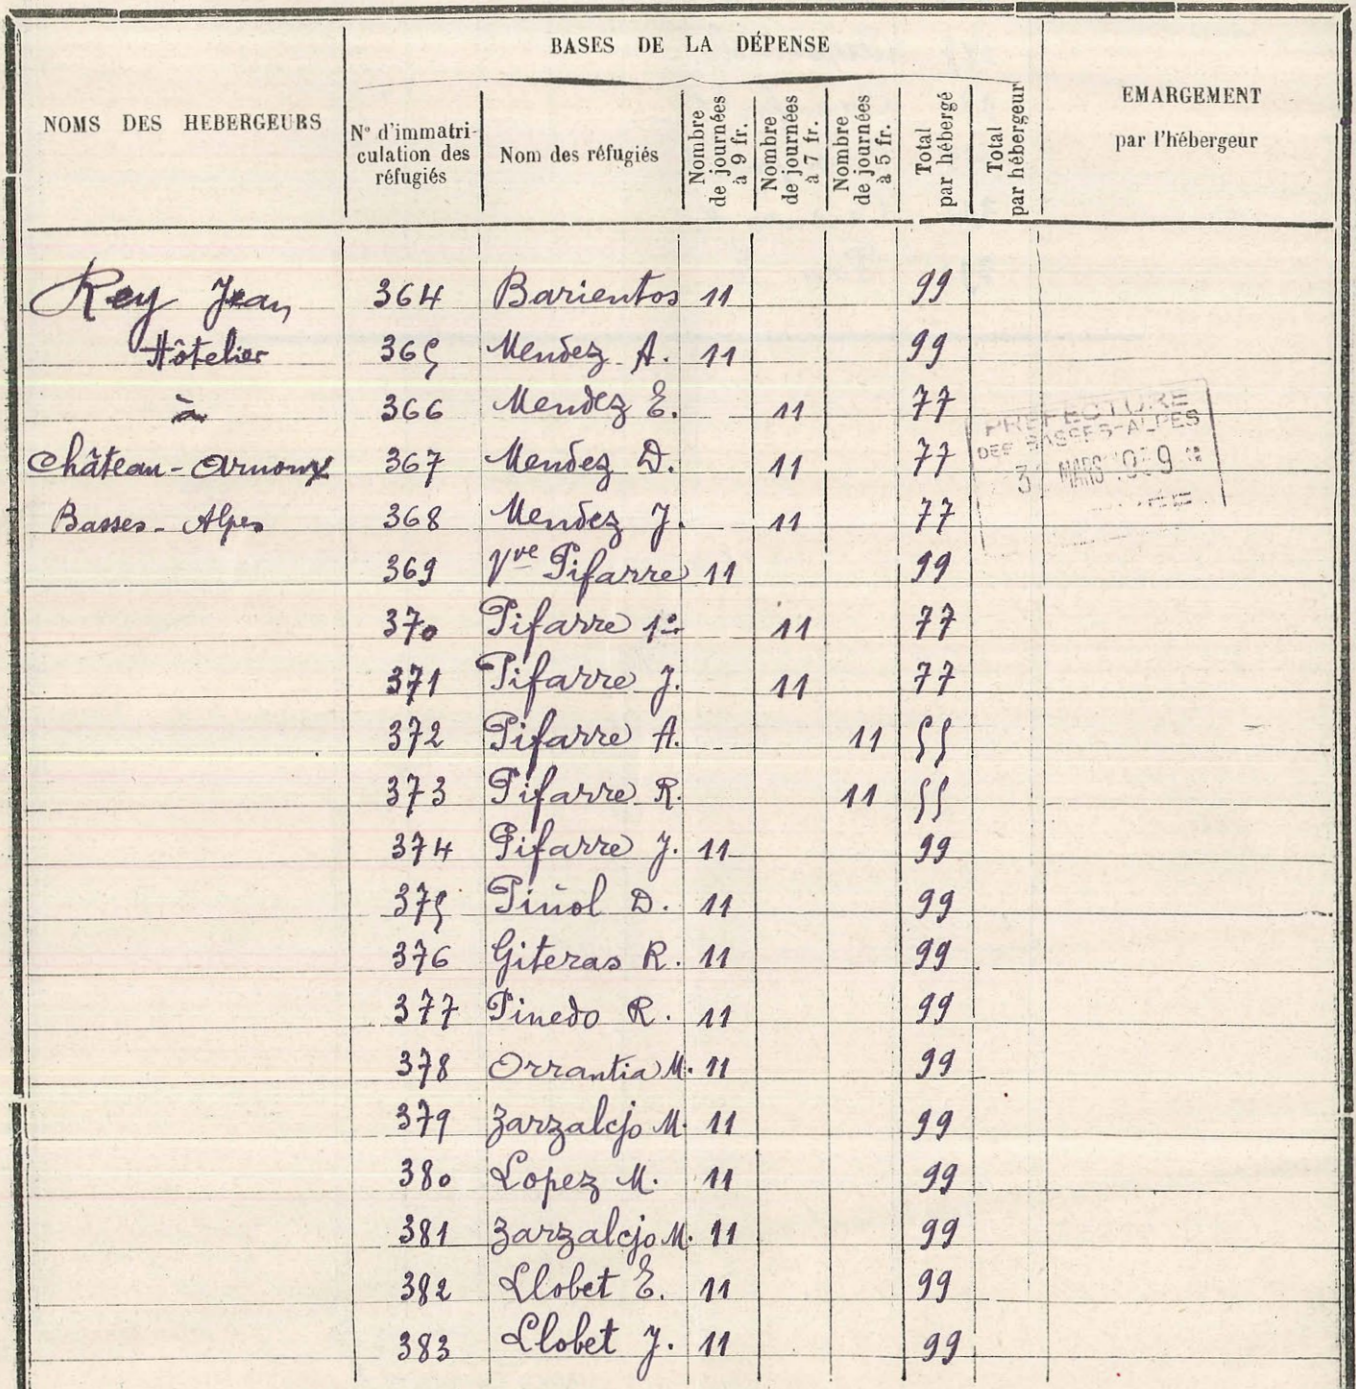 BASES DE LA DÉPENSE
NOMS DES HEBERGEURS
N° d'immatri-
culation des
réfugiés
Nom des réfugiés
Nombre
de journées
à 9 fr.
Nombre
de journées
à 7 fr.
Nombre
de journées
à 5 fr.
Total
par hébergé
Total
par hébergeur
EMARGEMENT
par l'hébergeur
Rey Jean 364 Barientos 11 99
Hôtelier 365 Mendez A. 11 99
à 366 Mendez E. 11 77
Château-Arnoux 367 Mendez D. 11 77
Basses-Alpes 368 Mendez J. 11 77
PREFECTURE
DES BASSES-ALPES
3 MARS 1939
369 Vve Pifarre 11 99
370 Pifarre 1º 11 77
371 Pifarre J. 11 77
372 Pifarre A. 11 55
373 Pifarre R. 11 55
374 Pifarre J. 11 99
375 Piñol D. 11 99
376 Giteras R. 11 99
377 Pinedo R. 11 99
378 Orrantia M. 11 99
379 Zarzalejo M. 11 99
380 Lopez M. 11 99
381 Zarzalejo M. 11 99
382 Llobet E. 11 99
383 Llobet J. 11 99